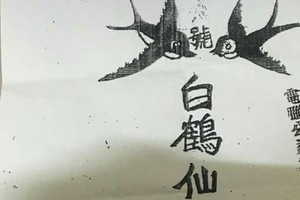 號
白鶴仙
電聯